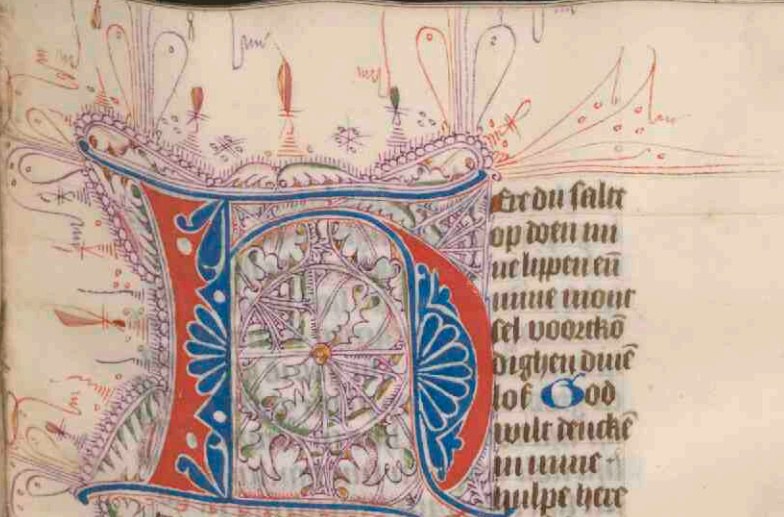 Ere du salt
op doen mi
ne lippen en̄
mine mont
sel voortkō
dighen dinē
lof God
wilt denckē
in mine
hulpe here